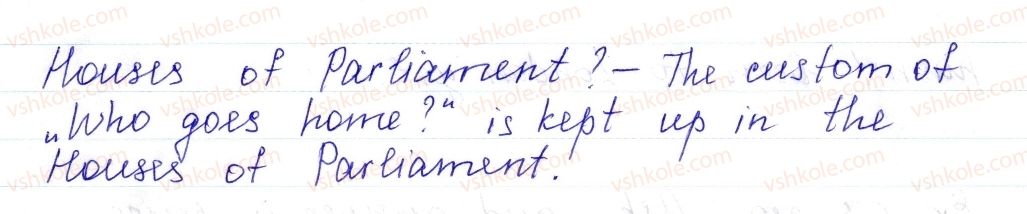 Houses of Parliament? – The custom of
„Who goes home?" is kept up in the
Houses of Parliament.